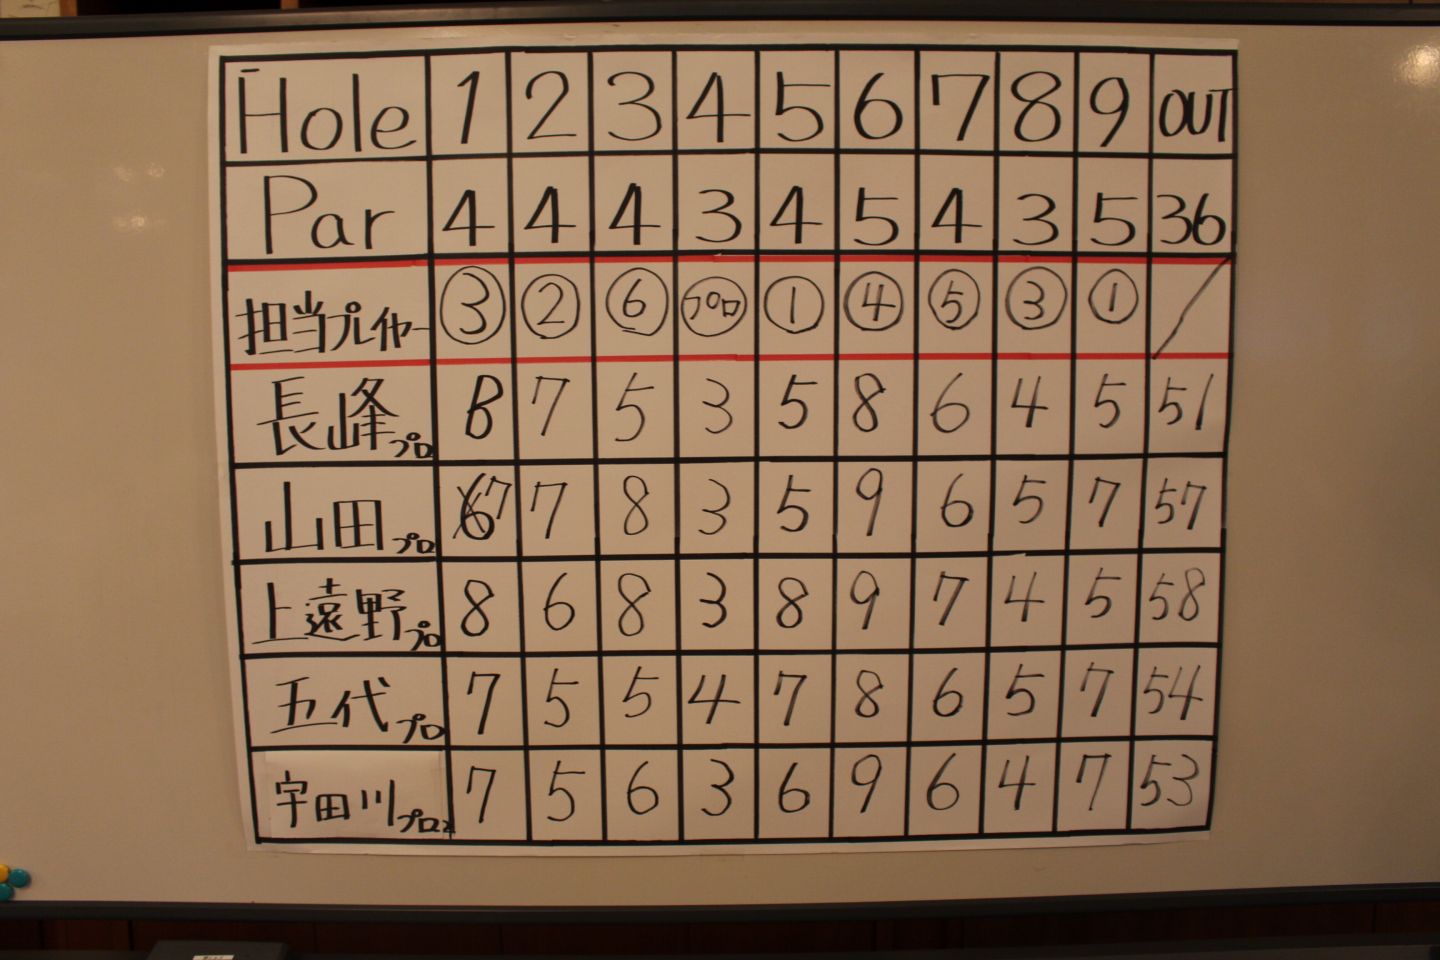 Hole 1 2 3 4 5 6 7 8 9 OUT
Par 4 4 4 3 4 5 4 3 5 36
担当プレイヤー ③ ② ⑥ プロ ① ④ ⑤ ③ ①
長峰プロ 8 7 5 3 5 8 6 4 5 51
山田プロ 7 7 8 3 5 9 6 5 7 57
上遠野プロ 8 6 8 3 8 9 7 4 5 58
五代プロ 7 5 5 4 7 8 6 5 7 54
宇田川プロ 7 5 6 3 6 9 6 4 7 53